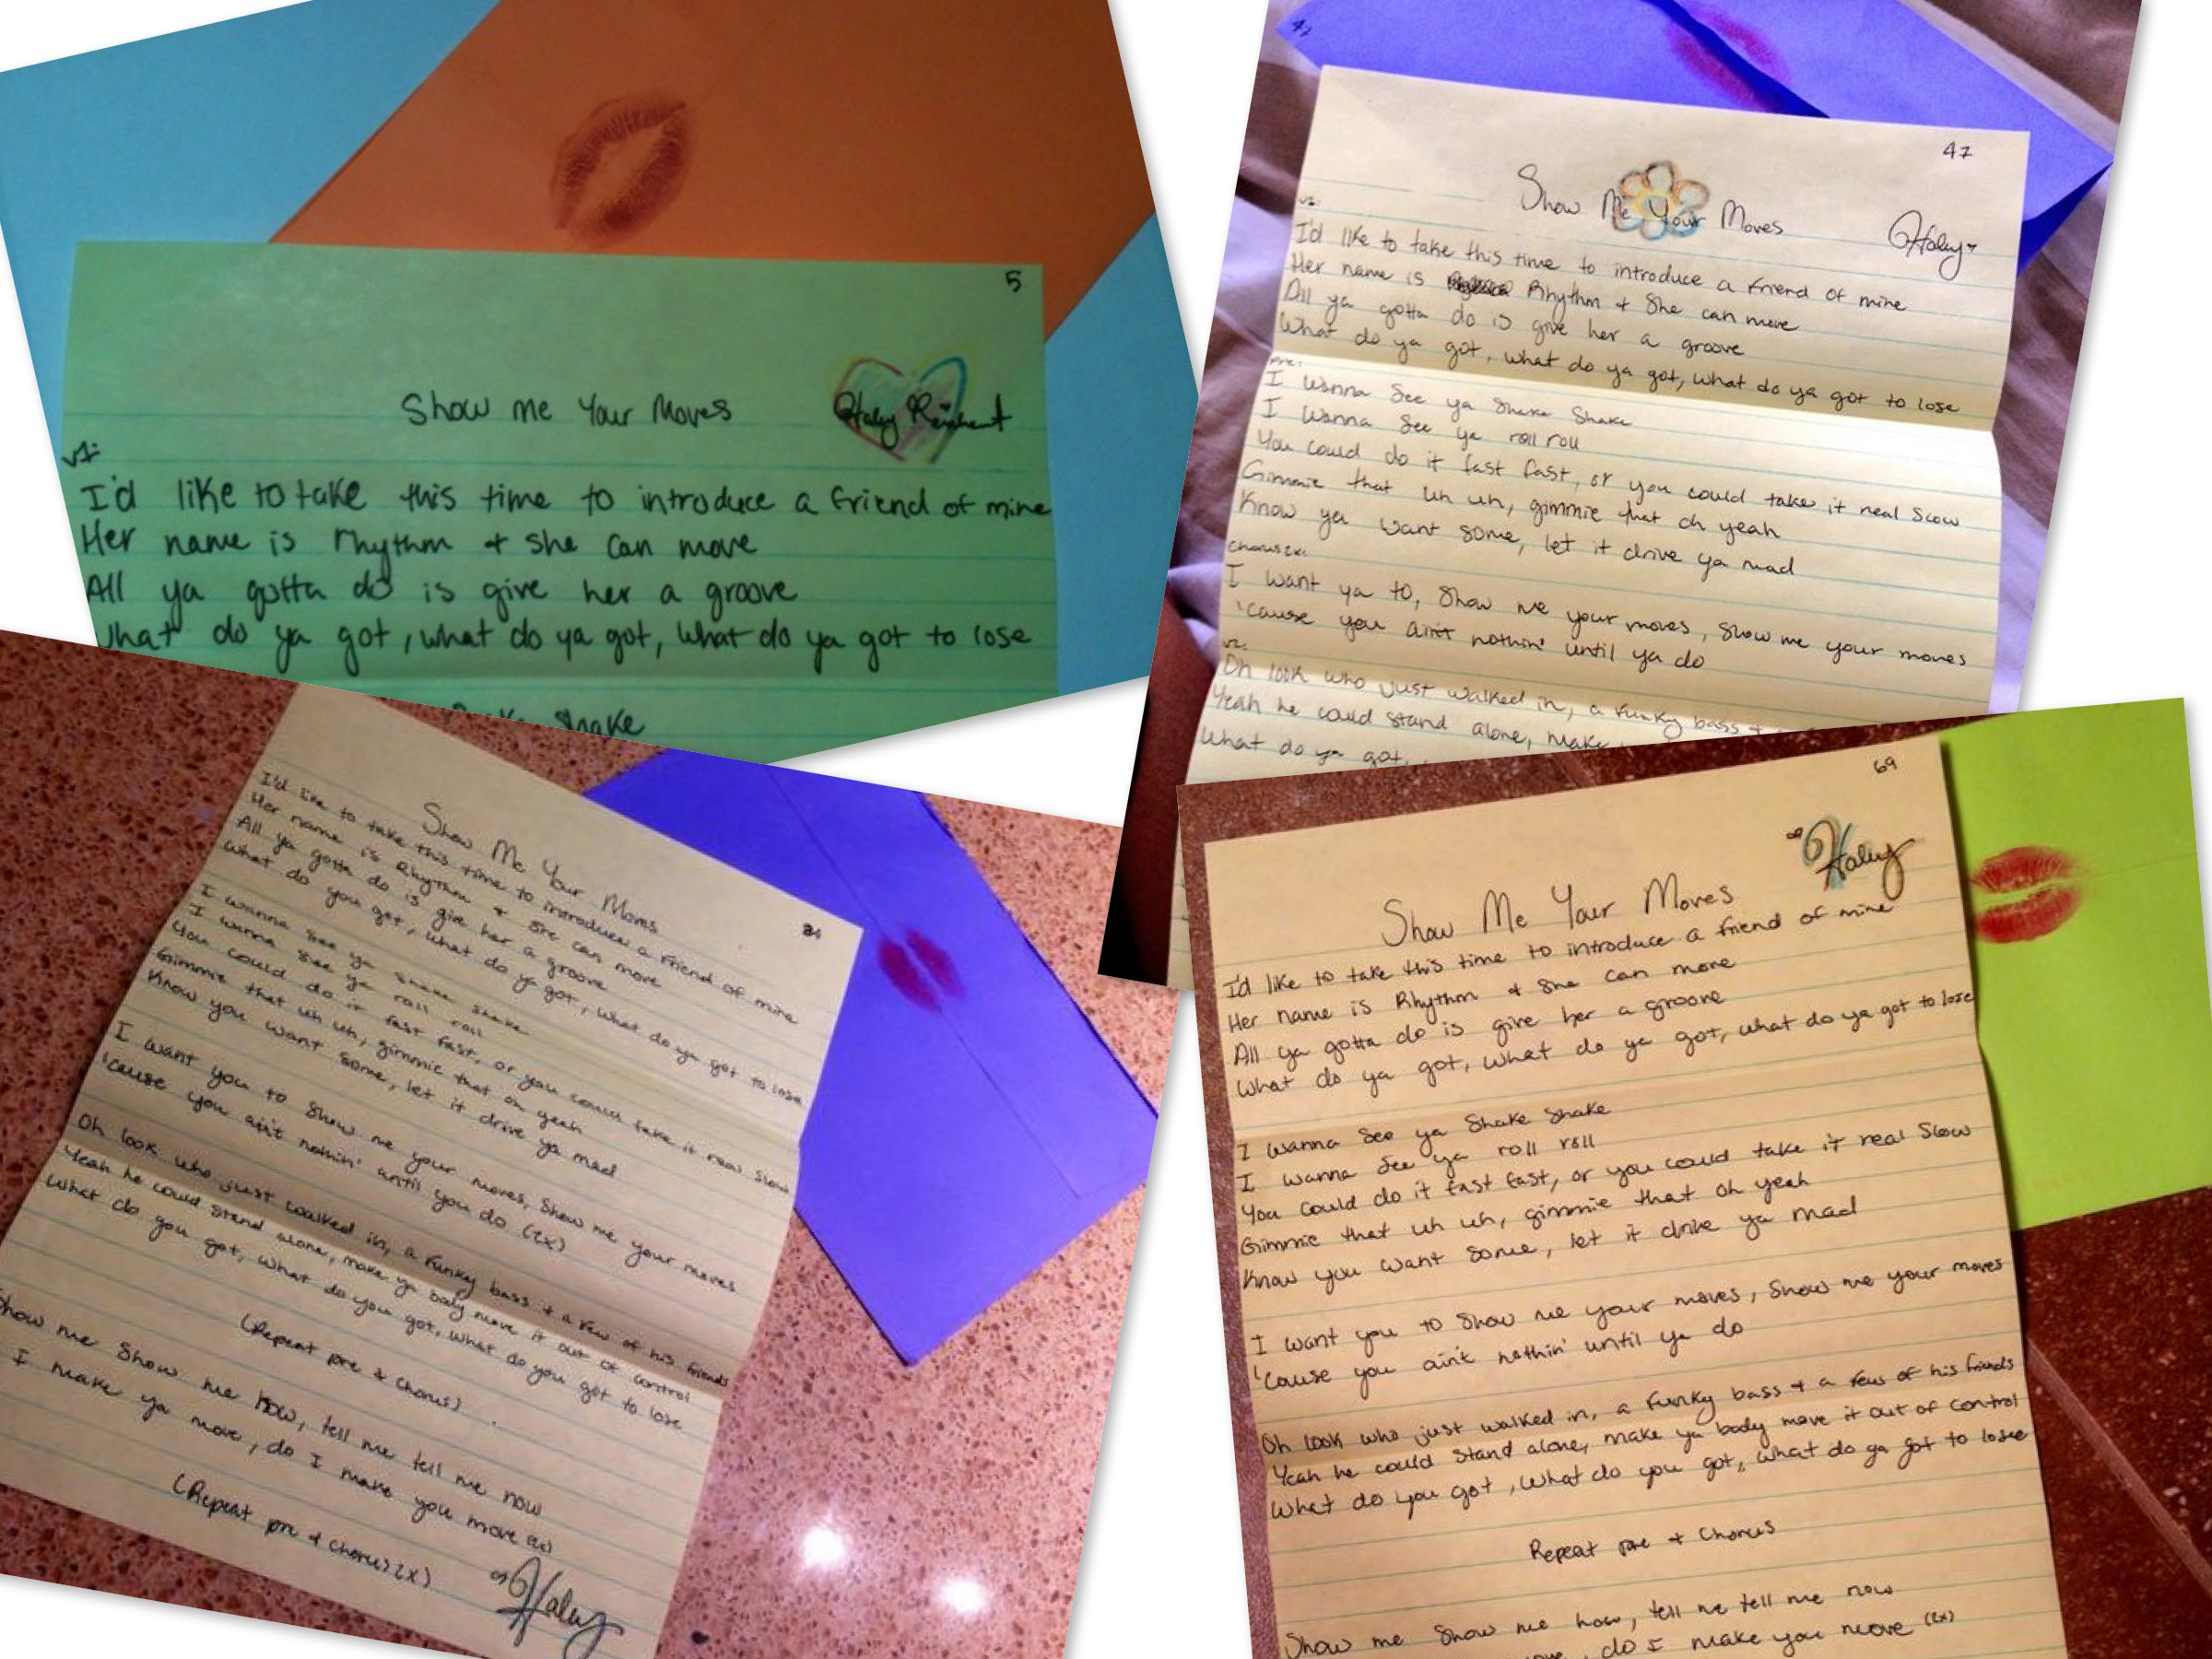 5
Show Me Your Moves
Haley Reinhart
v1:
I'd like to take this time to introduce a friend of mine
Her name is rhythm + she can move
All ya gotta do is give her a groove
What do ya got, what do ya got, what do ya got to lose
Shake
47
47
Show Me Your Moves
Haley
v1:
I'd like to take this time to introduce a friend of mine
Her name is Rhythm + She can move
All ya gotta do is give her a groove
What do ya got, what do ya got, what do ya got to lose
pre:
I wanna See ya Shake Shake
I wanna See ya roll roll
You could do it fast fast, or you could take it real Slow
Gimmie that uh uh, gimmie that oh yeah
Know ya want some, let it drive ya mad
I want ya to, Show me your moves, Show me your moves
'cause you ain't nothin' until ya do
v2:
Oh look who just walked in, a funky bass +
Yeah he could stand alone, make
What do ya got,
34
Show Me Your Moves
I'd like to take this time to introduce a friend of mine
Her name is Rhythm + She can move
All ya gotta do is give her a groove
What do you got, what do ya got, what do ya got to lose
I wanna See ya Shake Shake
I wanna See ya roll roll
You could do it fast fast, or you could take it real Slow
Gimmie that uh uh, gimmie that oh yeah
Know you want some, let it drive ya mad
I want you to Show me your moves, Show me your moves
'cause you ain't nothin' until you do (2x)
Oh look who just walked in, a funky bass + a few of his friends
Yeah he could stand alone, make ya body move it out of control
What do you got, what do you got, what do you got to lose
(Repeat pre + chorus)
Show me Show me how, tell me tell me now
I make ya move, do I make you move (2x)
(Repeat pre + chorus) (2x)
Haley
69
Haley
Show Me Your Moves
I'd like to take this time to introduce a friend of mine
Her name is Rhythm + She can move
All ya gotta do is give her a groove
What do ya got, what do ya got, what do ya got to lose
I wanna See ya Shake Shake
I wanna See ya roll roll
You could do it fast fast, or you could take it real Slow
Gimmie that uh uh, gimmie that oh yeah
Know you want Some, let it drive ya mad
I want you to Show me your moves, Show me your moves
'cause you ain't nothin' until ya do
Oh look who just walked in, a funky bass + a few of his friends
Yeah he could stand alone, make ya body move it out of control
What do you got, what do you got, what do ya got to lose
Repeat pre + Chorus
Show me Show me how, tell me tell me now
do I make you move (2x)